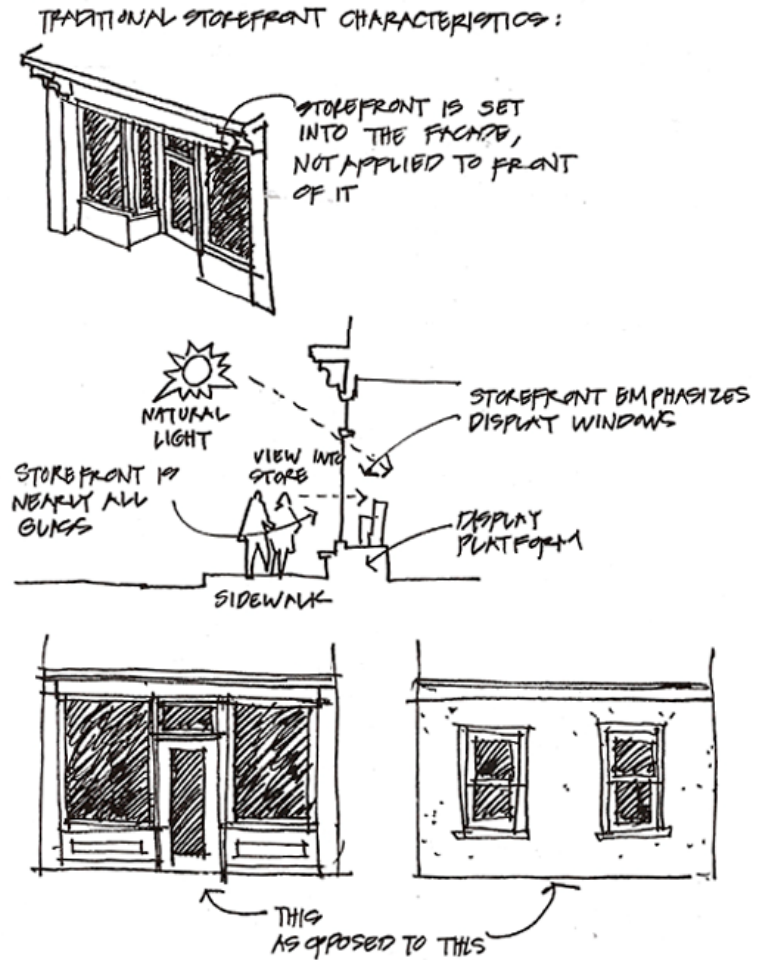 TRADITIONAL STOREFRONT CHARACTERISTICS:
STOREFRONT IS SET
INTO THE FACADE,
NOT APPLIED TO FRONT
OF IT
NATURAL
LIGHT
STOREFRONT EMPHASIZES
DISPLAY WINDOWS
VIEW INTO
STORE
STOREFRONT IS
NEARLY ALL
GLASS
DISPLAY
PLATFORM
SIDEWALK
THIS
AS OPPOSED TO THIS